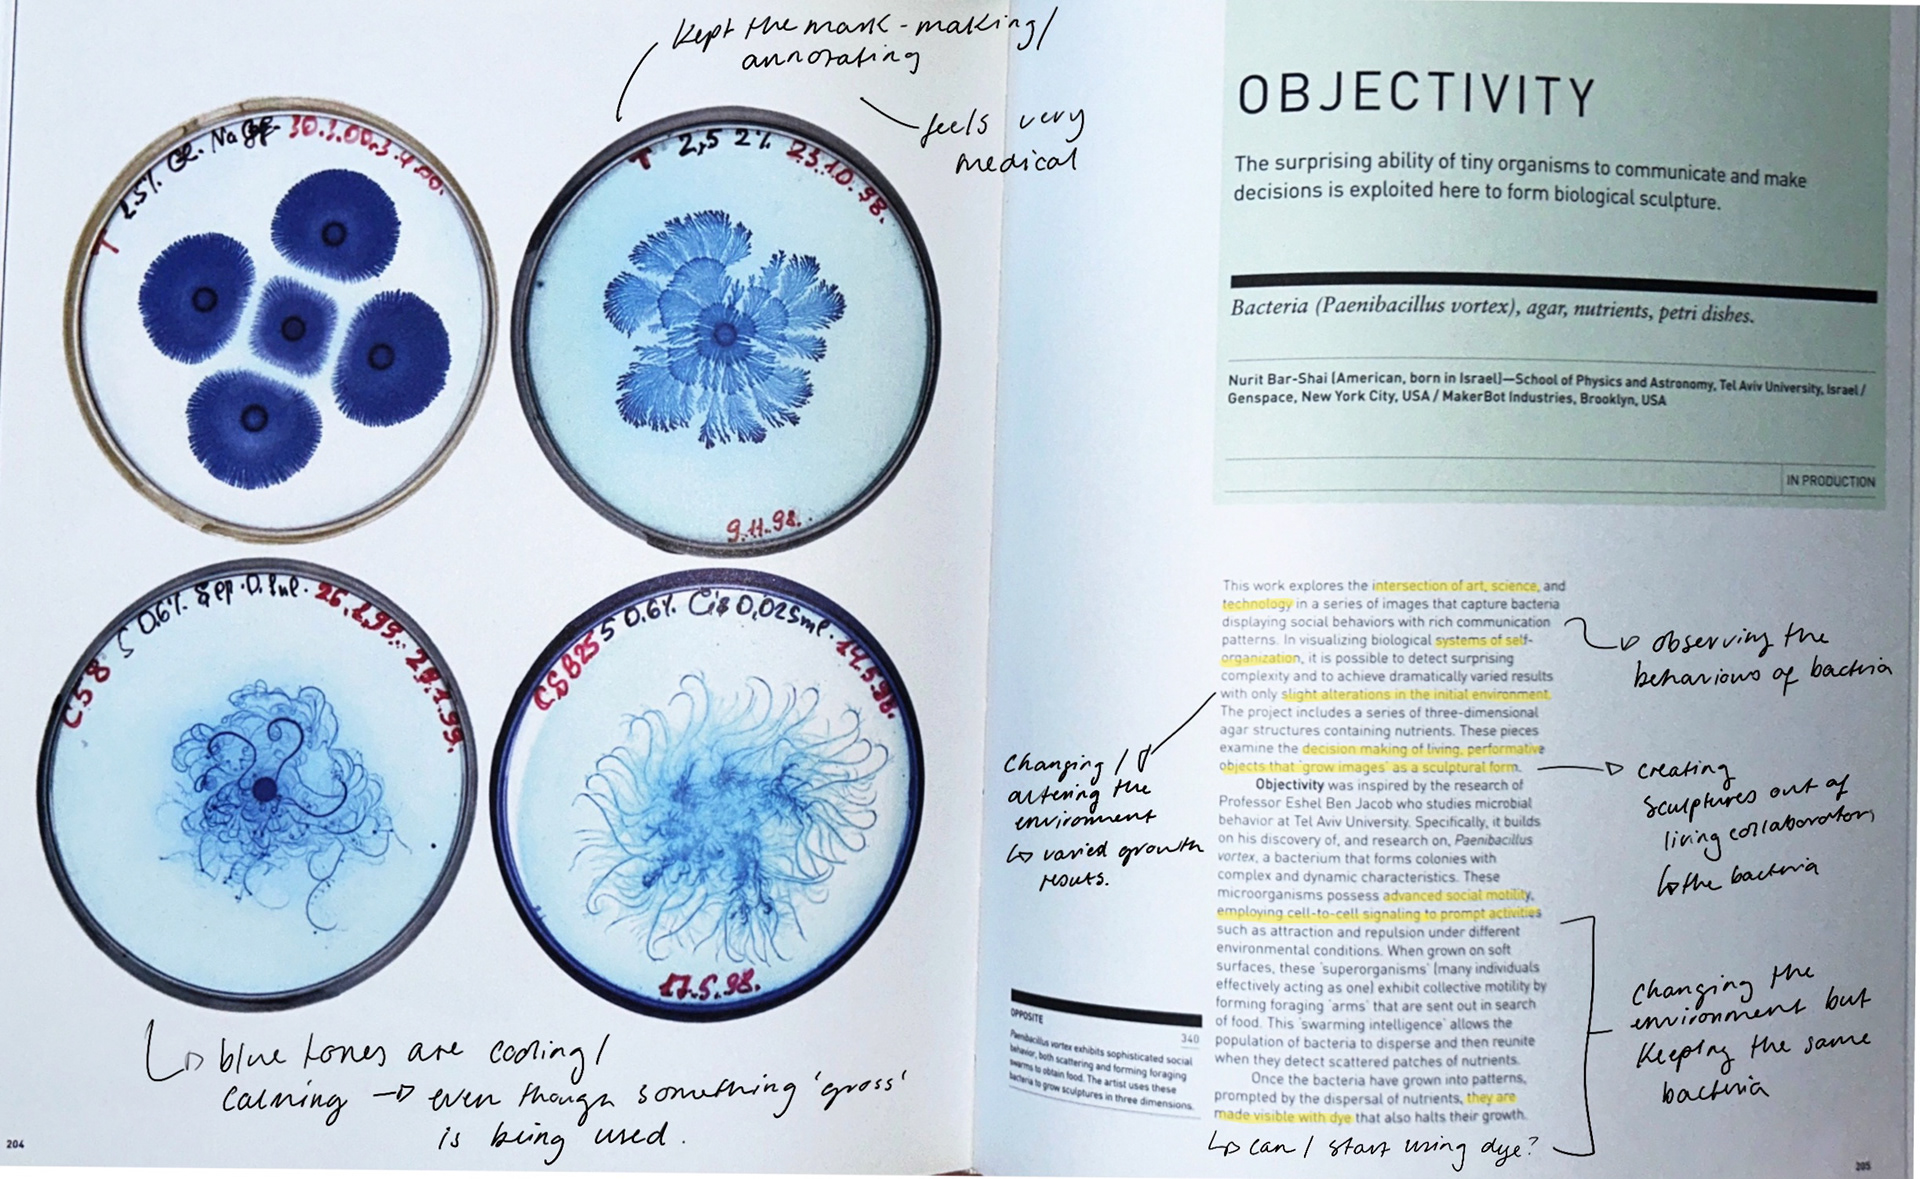 Kept the mark-making/
annotating
feels very
medical
2.5%
30.3.00.
T
T 2,5 2% 23.10.98.
9.11.98.
0.6%
CSB25 S 0.6% 0,025ml. 14.5.98.
17.5.98.
blue tones are cooling/
calming → even though something 'gross'
is being used.
204
OBJECTIVITY
The surprising ability of tiny organisms to communicate and make
decisions is exploited here to form biological sculpture.
Bacteria (Paenibacillus vortex), agar, nutrients, petri dishes.
Nurit Bar-Shai (American, born in Israel)—School of Physics and Astronomy, Tel Aviv University, Israel /
Genspace, New York City, USA / MakerBot Industries, Brooklyn, USA
IN PRODUCTION
This work explores the intersection of art, science, and
technology in a series of images that capture bacteria
displaying social behaviors with rich communication
patterns. In visualizing biological systems of self-
organization, it is possible to detect surprising
complexity and to achieve dramatically varied results
with only slight alterations in the initial environment.
The project includes a series of three-dimensional
agar structures containing nutrients. These pieces
examine the decision making of living, performative
objects that 'grow images' as a sculptural form.
Objectivity was inspired by the research of
Professor Eshel Ben Jacob who studies microbial
behavior at Tel Aviv University. Specifically, it builds
on his discovery of, and research on, Paenibacillus
vortex, a bacterium that forms colonies with
complex and dynamic characteristics. These
microorganisms possess advanced social motility,
employing cell-to-cell signaling to prompt activities
such as attraction and repulsion under different
environmental conditions. When grown on soft
surfaces, these 'superorganisms' (many individuals
effectively acting as one) exhibit collective motility by
forming foraging 'arms' that are sent out in search
of food. This 'swarming intelligence' allows the
population of bacteria to disperse and then reunite
when they detect scattered patches of nutrients.
Once the bacteria have grown into patterns,
prompted by the dispersal of nutrients, they are
made visible with dye that also halts their growth.
can I start using dye?
observing the
behaviours of bacteria
Changing /
altering the
environment
varied growth
results.
creating
sculptures out of
living collaborators
the bacteria
Changing the
environment but
keeping the same
bacteria
OPPOSITE
340
Paenibacillus vortex exhibits sophisticated social
behavior, both scattering and forming foraging
swarms to obtain food. The artist uses these
bacteria to grow sculptures in three dimensions.
205